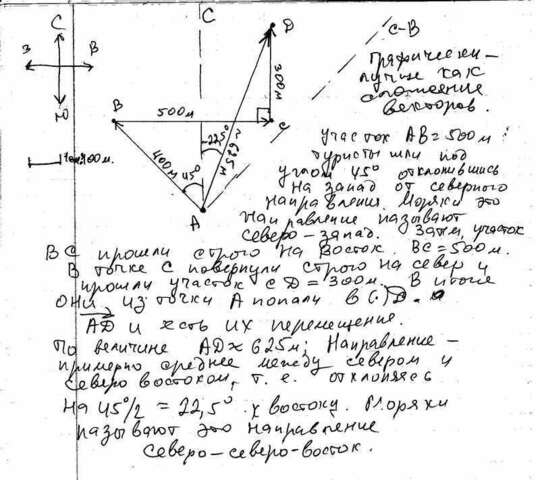 С
З В
Ю
100м.
С
D
С-В
Графически –
лучше как
сложение
векторов.
В
500м
С
300м
400м
45°
~22,5°
~625м
А
Участок АВ = 500м
туристы шли под
углом 45° отклонившись
на запад от северного
направления. Моряки это
направление называют
северо-запад. Затем, участок
ВС прошли строго на восток. ВС = 500м.
В точке С повернули строго на север и
прошли участок СD = 300м. В итоге
они из точки А попали в D.
AD и есть их перемещение.
По величине AD ≈ 625м; Направление –
примерно среднее между севером и
северо востоком, т.е. отклоняясь
на 45°/2 = 22,5° к востоку. Моряки
называют это направление
северо-северо-восток.